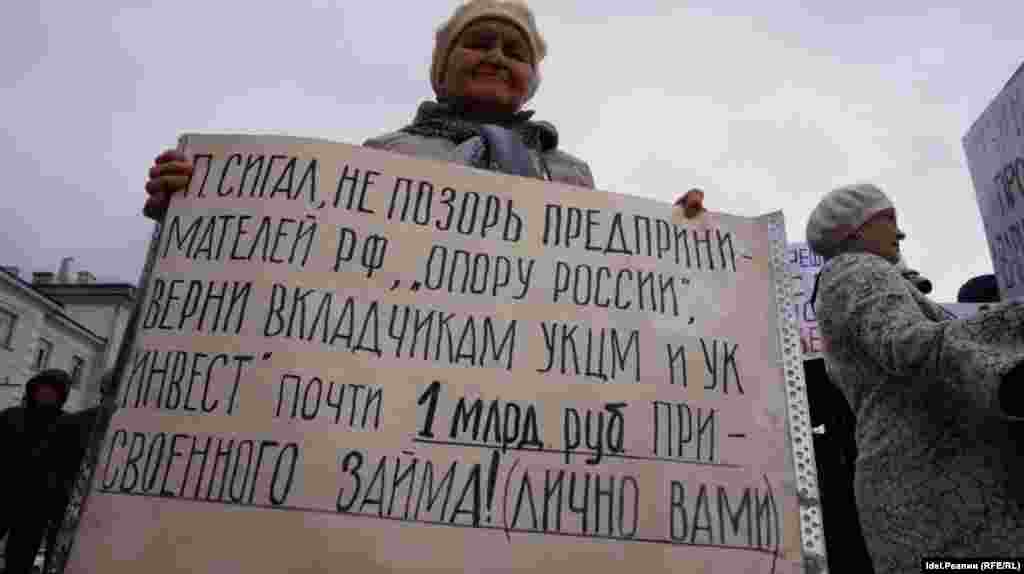 П. СИГАЛ, НЕ ПОЗОРЬ ПРЕДПРИНИ-
МАТЕЛЕЙ РФ, „ОПОРУ РОССИИ",
ВЕРНИ ВКЛАДЧИКАМ УКЦМ И УК
ИНВЕСТ" ПОЧТИ 1 МЛРД РУБ ПРИ-
СВОЕННОГО ЗАЙМА! (ЛИЧНО ВАМИ)
Idel.Реалии (RFE/RL)